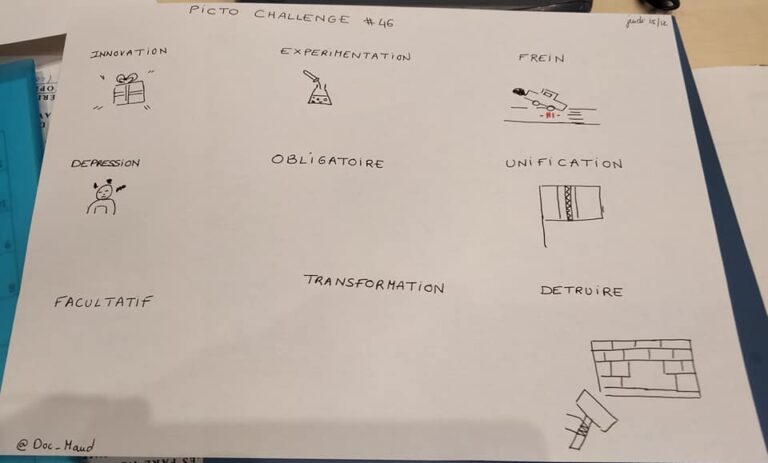 PICTO CHALLENGE #46
jeudi 15/12
INNOVATION
EXPERIMENTATION
FREIN
DEPRESSION
OBLIGATOIRE
UNIFICATION
FACULTATIF
TRANSFORMATION
DETRUIRE
@Doc_Maud